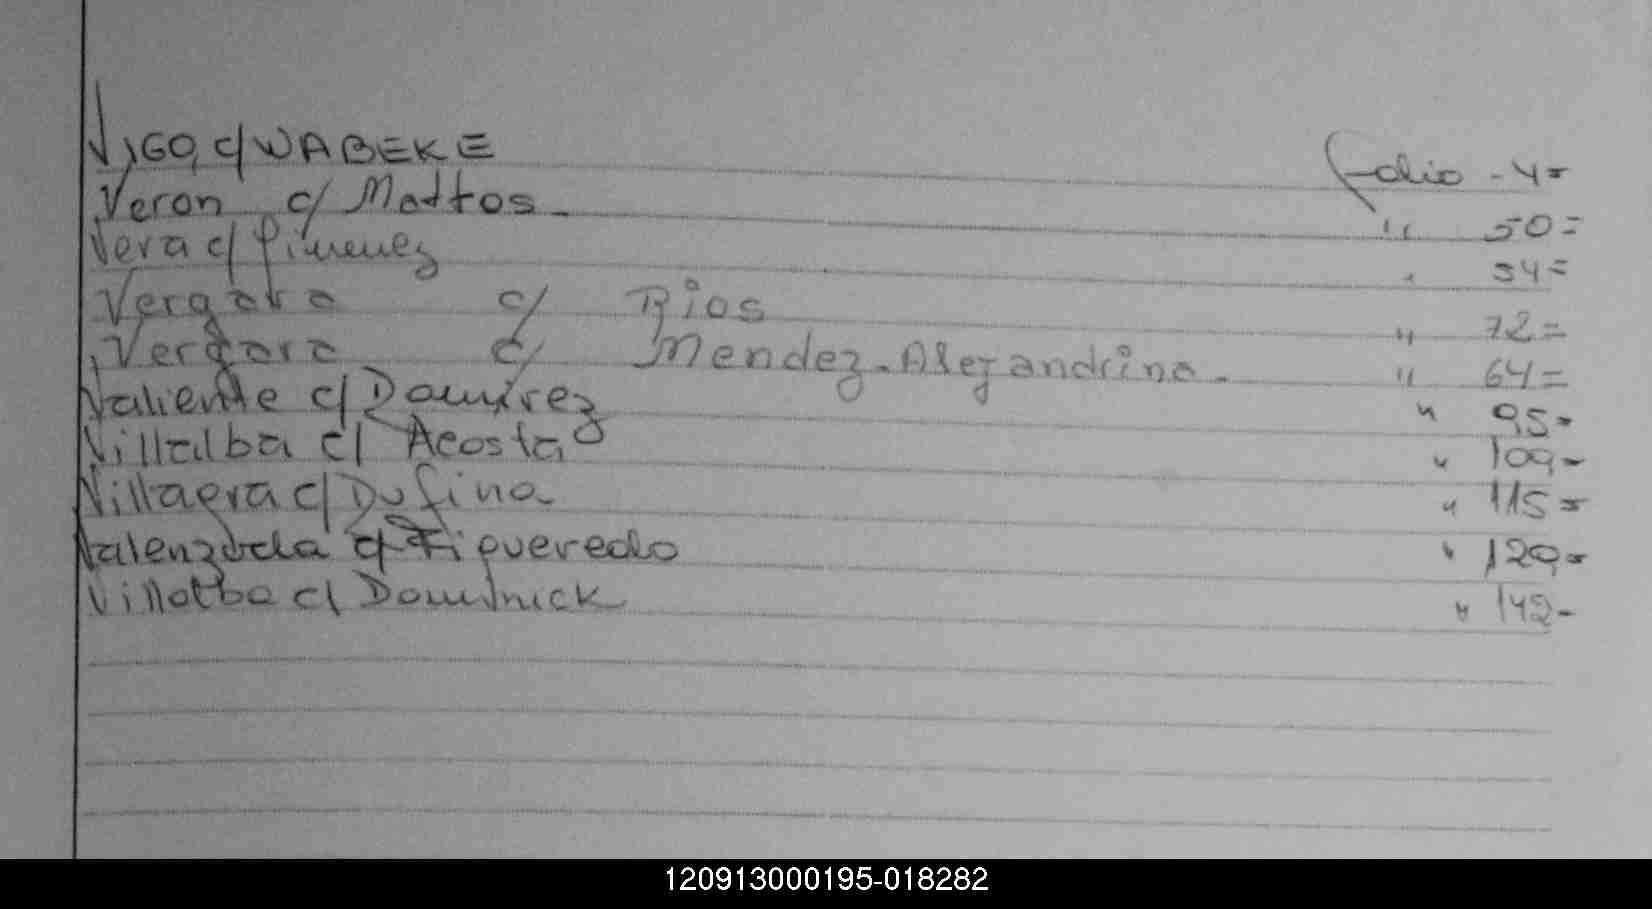 VIGO, c/ WABEKE folio - 4=
Veron c/ Mattos - " 50=
Vera c/ Gimenez " 54=
Vergara c/ Rios " 72=
Vergara c/ Mendez - Alejandrina - " 64=
Valiente c/ Ramirez " 95=
Villalba c/ Acosta " 109=
Villagra c/ Dufina " 115=
Valenzuela c/ Figueredo " 129=
Villalba c/ Dominick " 142-
120913000195-018282